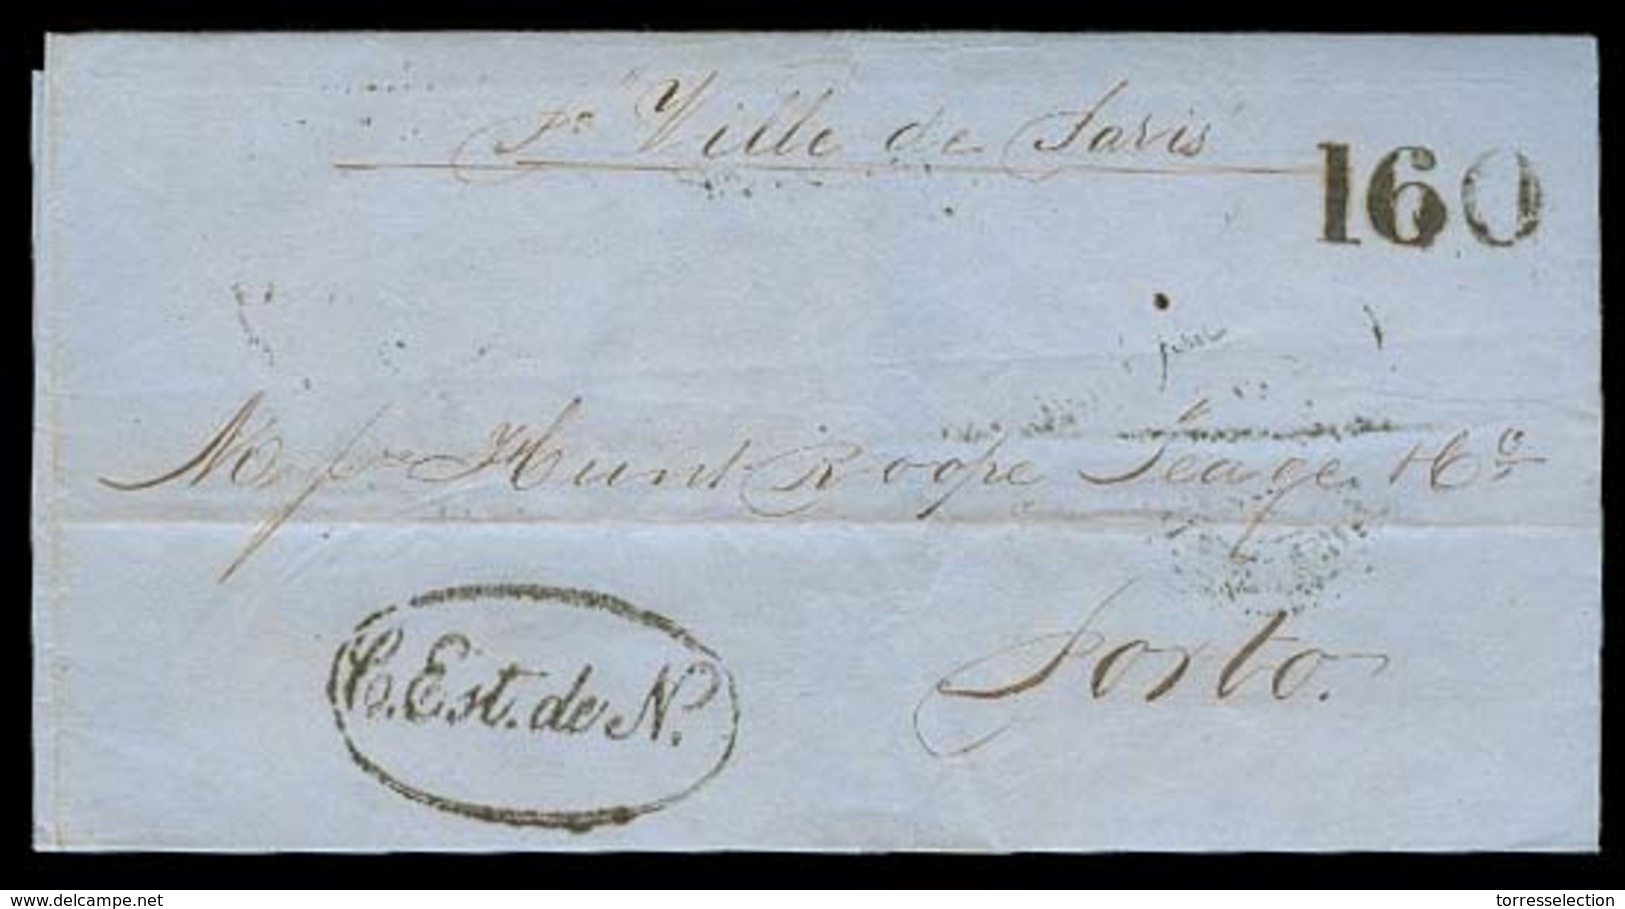 pr "Ville de Paris"
160
Messrs Hunt Roope Teage & Co
C. Est. de N.
Porto.
www.delcampe.net
torresselection